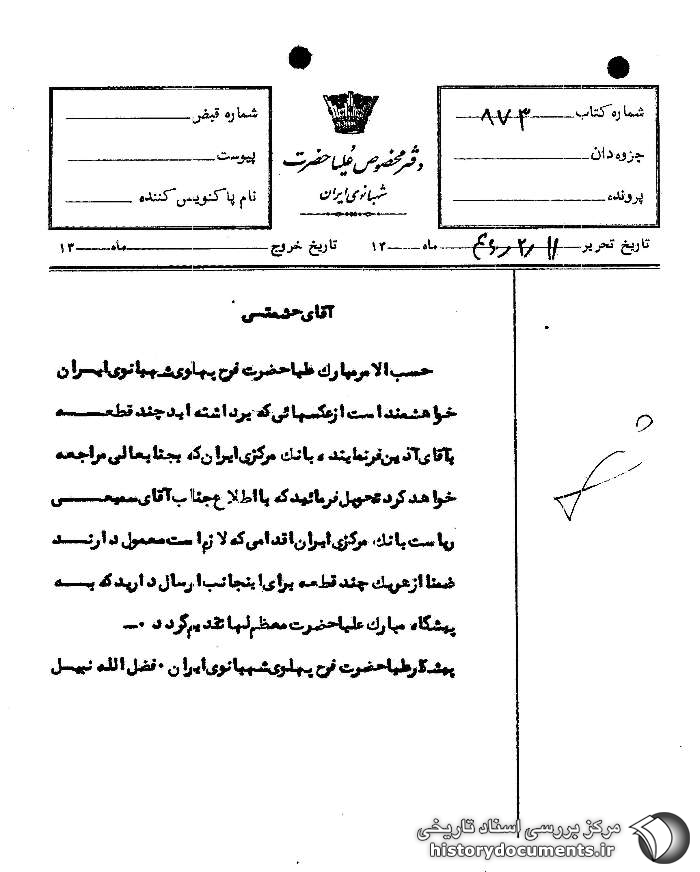 شماره کتاب ۹۷۳
جزوه دان
پرونده
دفتر مخصوص علیاحضرت
شهبانوی ایران
شماره قبض
پیوست
نام پاکنویس کننده
تاریخ تحریر ۴۶/۲/۱۱ ماه ۱۳
تاریخ خروج ماه ۱۳
آقای حشمتی
حسب الامر مبارک علیاحضرت فرح پهلوی شهبانوی ایران
خواهشمند است از عکسهائی که برداشته اید چند قطعه
بآقای آذین فر نماینده بانک مرکزی ایران که بجنابعالی مراجعه
خواهد کرد تحویل فرمائید که با اطلاع جناب آقای سمیعی
ریاست بانک مرکزی ایران اقدامی که لازم است معمول دارند
ضمنا از هریک چند قطعه برای اینجانب ارسال دارید که به
پیشگاه مبارک علیاحضرت معظم لها تقدیم گردد ۰ــ
پیشکار علیاحضرت فرح پهلوی شهبانوی ایران ۰ فضل الله نبیل
مرکز بررسی اسناد تاریخی
historydocuments.ir